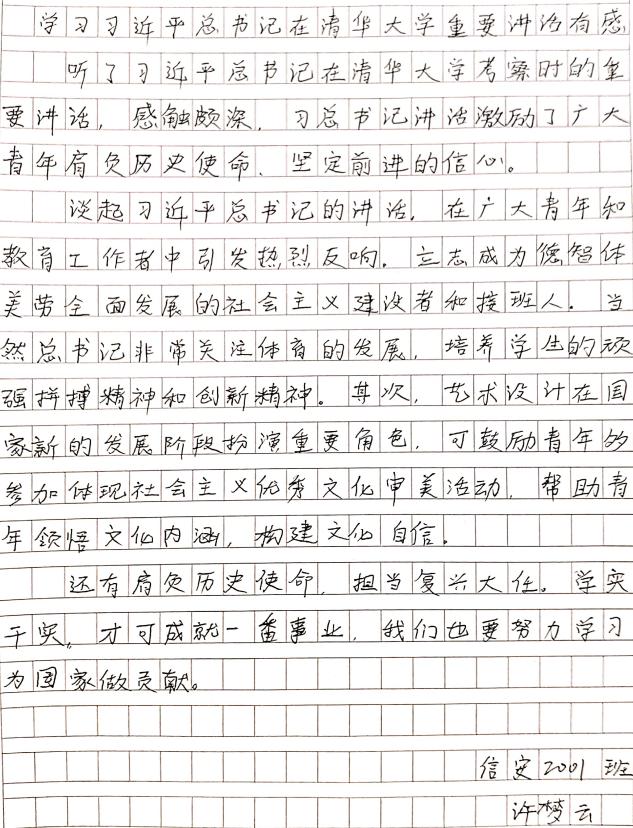 学习习近平总书记在清华大学重要讲话有感
听了习近平总书记在清华大学考察时的重
要讲话，感触颇深，习总书记讲话激励了广大
青年肩负历史使命，坚定前进的信心。
谈起习近平总书记的讲话，在广大青年和
教育工作者中引发热烈反响，立志成为德智体
美劳全面发展的社会主义建设者和接班人。当
然总书记非常关注体育的发展，培养学生的顽
强拼搏精神和创新精神。其次，艺术设计在国
家新的发展阶段扮演重要角色，可鼓励青年的
参加体现社会主义优秀文化审美活动，帮助青
年领悟文化内涵，构建文化自信。
还有肩负历史使命，担当复兴大任。学实
干实。才可成就一番事业，我们也要努力学习
为国家做贡献。
信安2001班
许梦云